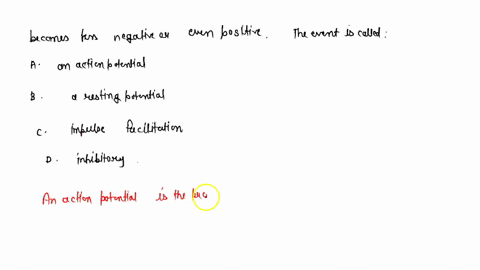 becomes less negative or even positive. The event is called:
A. an action potential
B. a resting potential
C. Impulse Facilitation
D. inhibitory.
An action potential is the